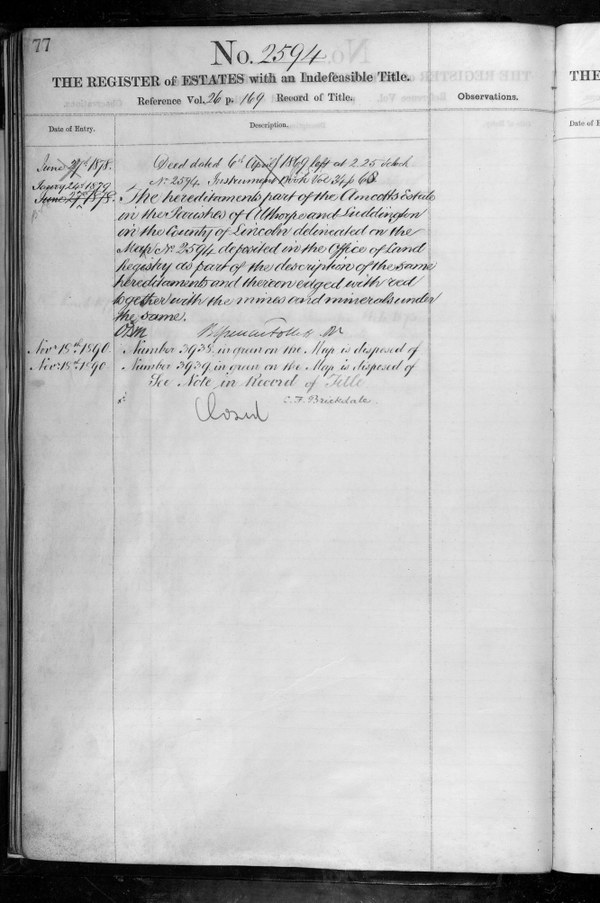 77
No. 2594
THE REGISTER of ESTATES with an Indefeasible Title.
Reference Vol. 26 p. 169 Record of Title.
Observations.
Date of Entry.
Description.
June 27th 1878.
Deed dated 6th April 1869 left at 2.25 o'clock
No 2594 Instrument Book Vol 34 p 68
24th 1879
June 27th 1878.
The hereditaments part of the Amcotts Estate
in the Parishes of Althorpe and Luddington
in the County of Lincoln delineated on the
Map No 2594 deposited in the Office of Land
Registry as part of the description of the same
hereditaments and thereon edged with red
together with the mines and minerals under
the same.
Nov 18th 1890.
Number 3938 in green on the Map is disposed of
Nov: 18th 1890
Number 3939 in green on the Map is disposed of
See Note in Record of Title
C. F. Brickdale.
Closed
THE
Date of E